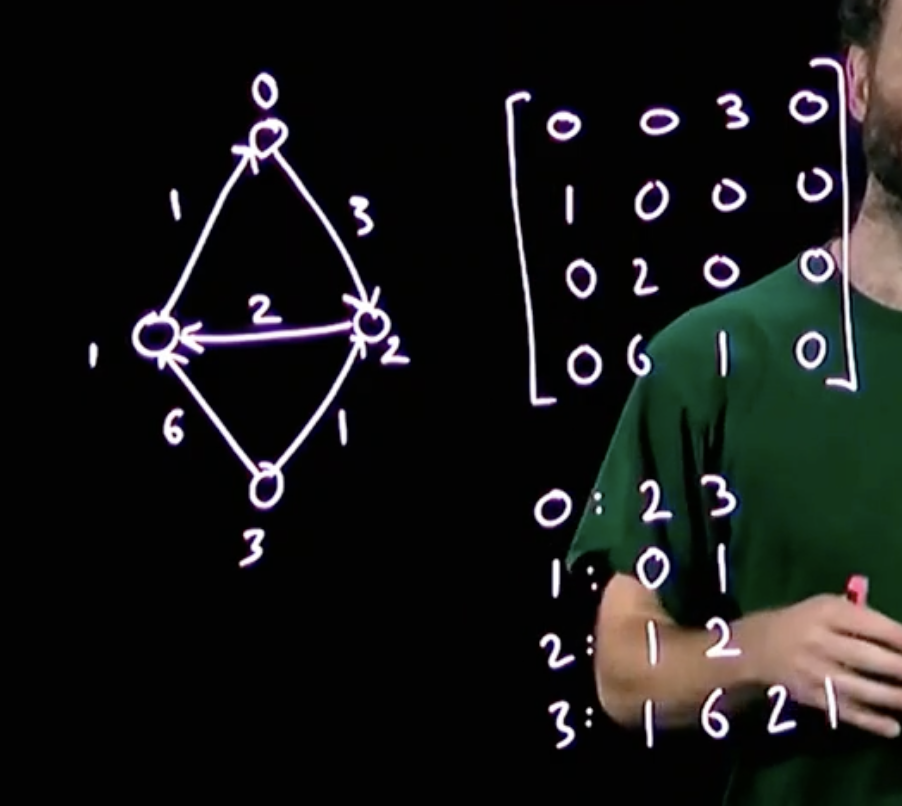 0
1 3
2
1 2
6 1
3
0 0 3 0
1 0 0 0
0 2 0 0
0 6 1 0
0: 2 3
1: 0 1
2: 1 2
3: 1 6 2 1